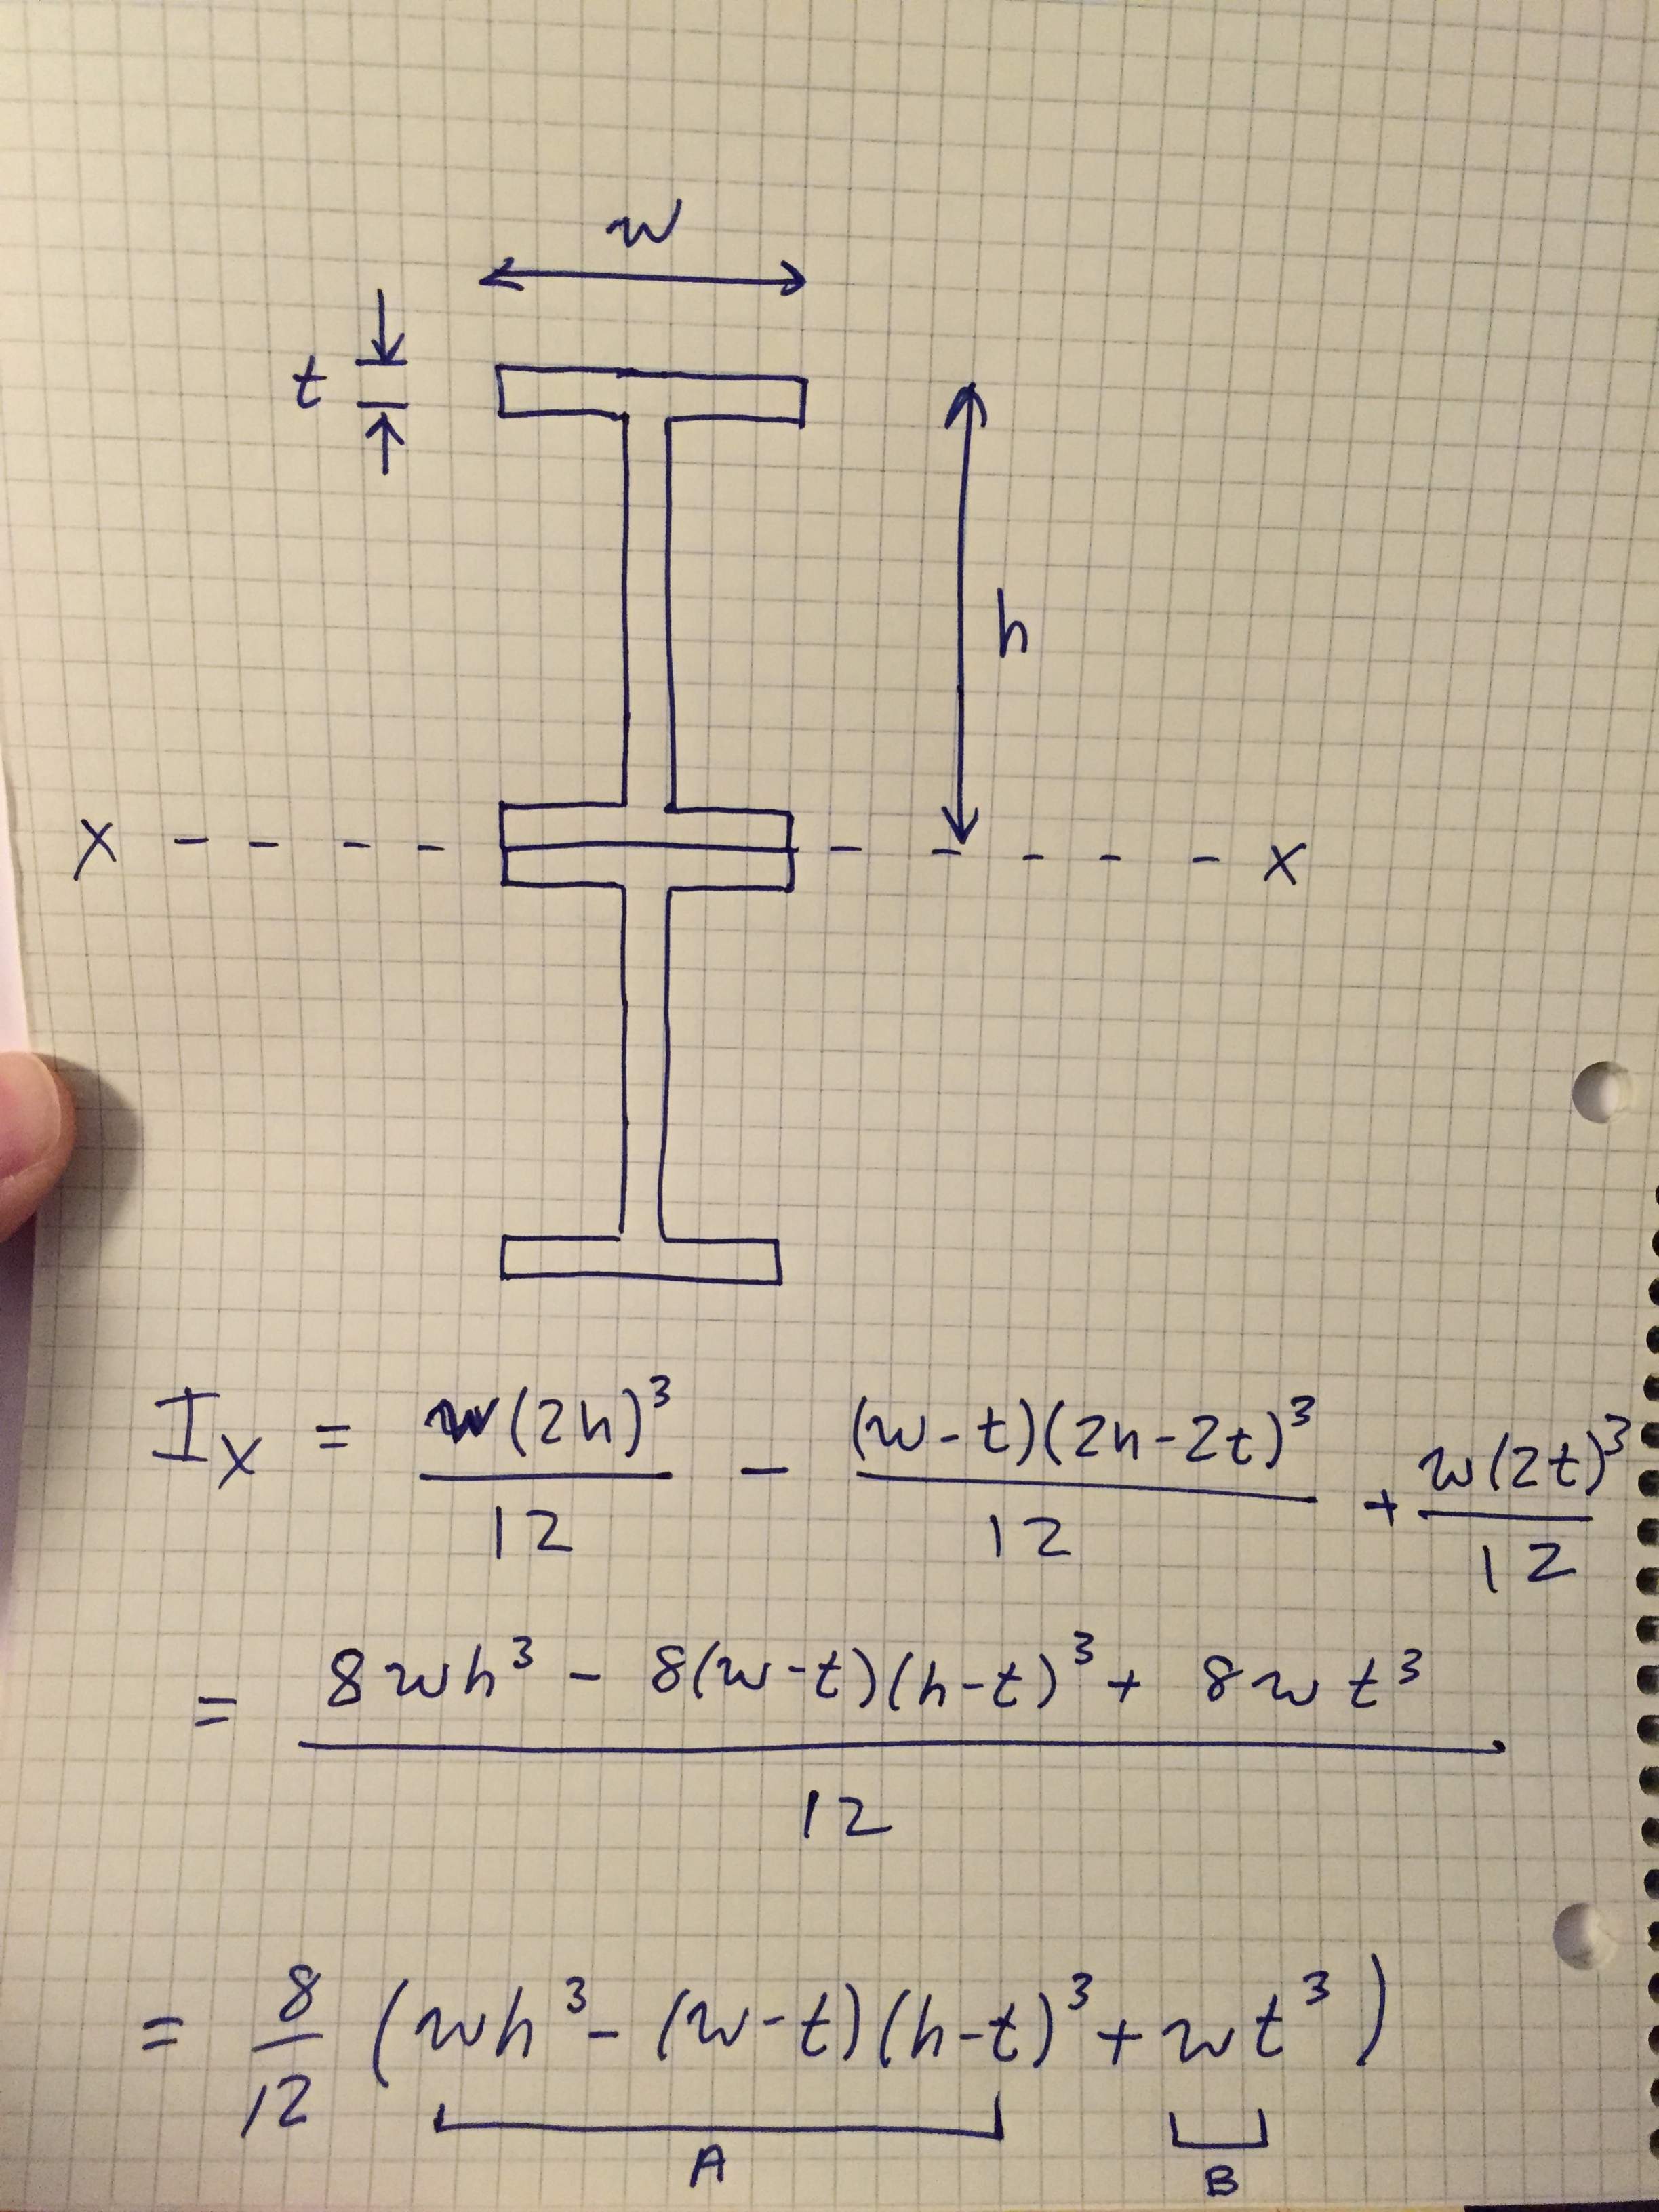 w
t
h
x x
Ix = w(2h)³/12 - (w-t)(2h-2t)³/12 + w(2t)³/12
= (8wh³ - 8(w-t)(h-t)³ + 8wt³)/12
= 8/12 (wh³ - (w-t)(h-t)³ + wt³)
A B